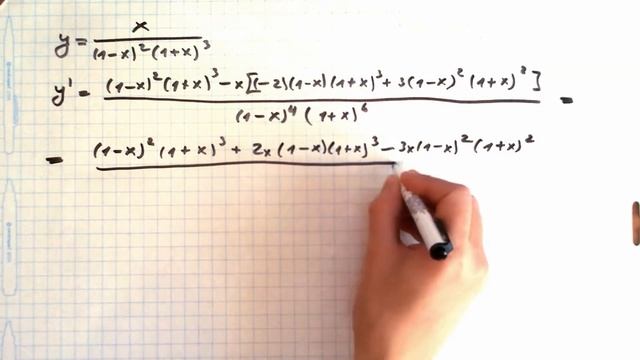 y = x / (1-x)²(1+x)³
y' = (1-x)²(1+x)³ - x[(-2)(1-x)(1+x)³ + 3(1-x)²(1+x)²] / (1-x)⁴(1+x)⁶ =
= (1-x)²(1+x)³ + 2x(1-x)(1+x)³ - 3x(1-x)²(1+x)²